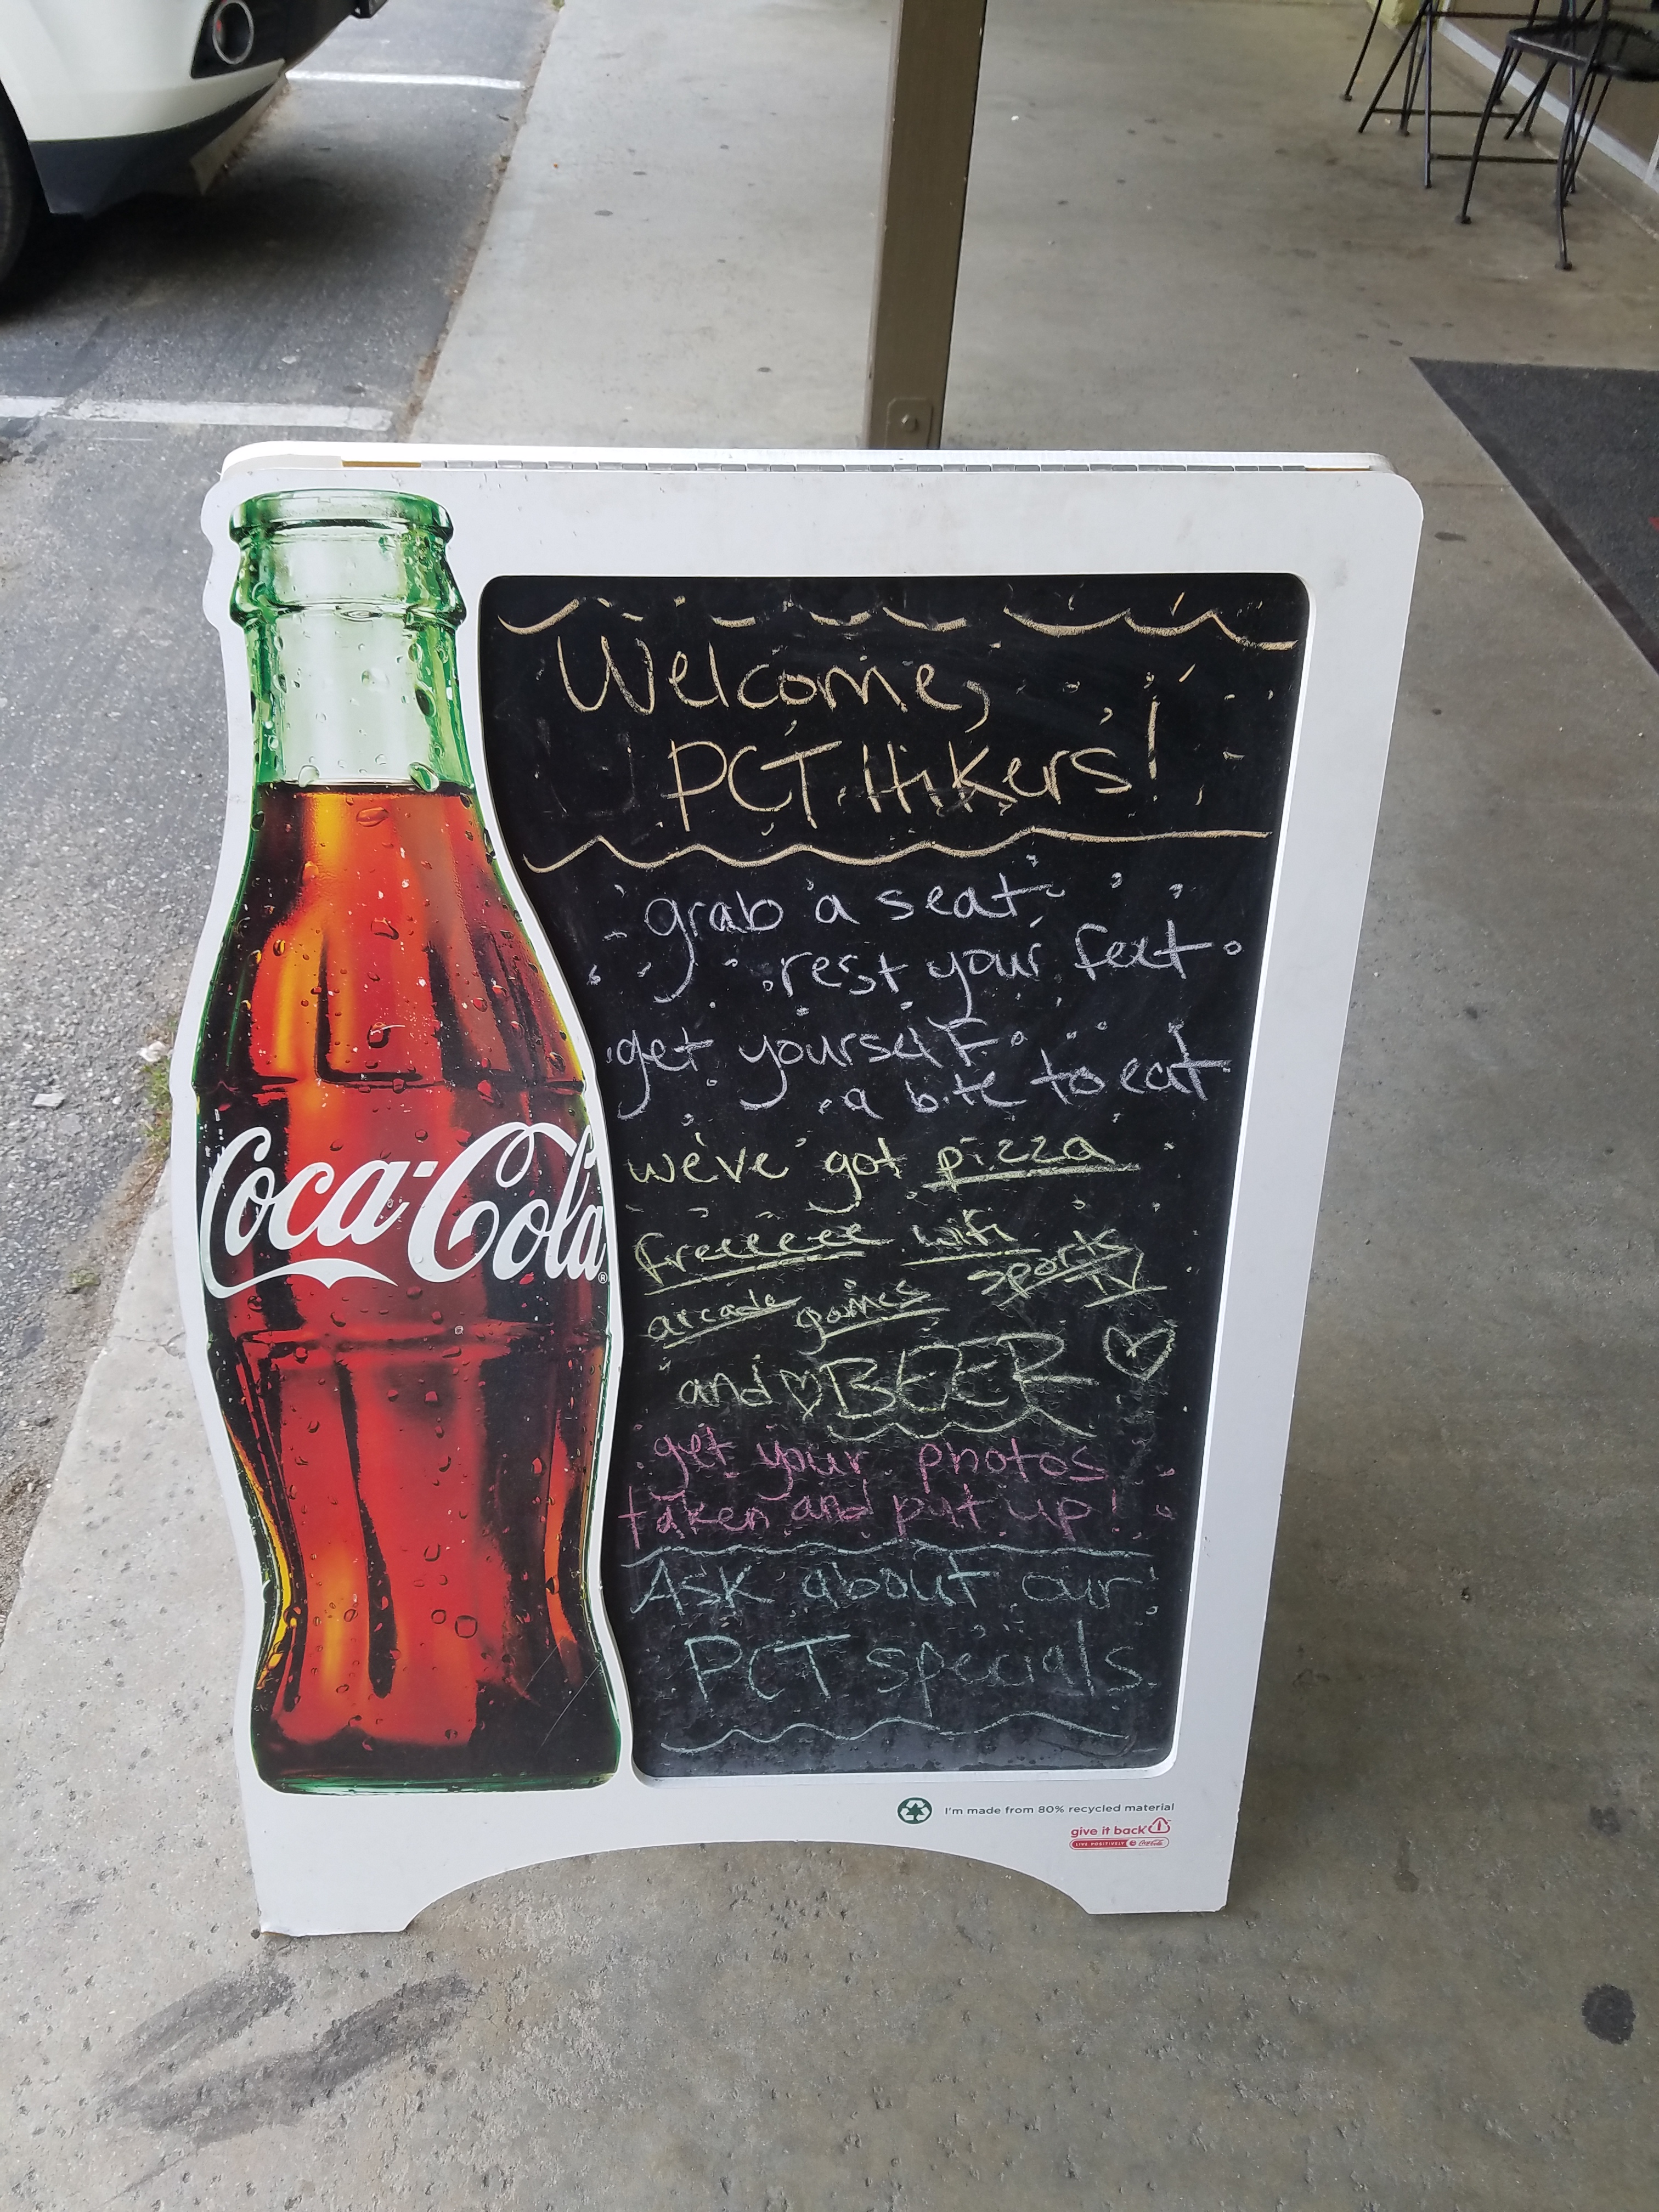 Coca-Cola
Welcome,
PCT Hikers!
grab a seat
rest your feet
get yourself
a bite to eat
we've got pizza
freeeeee wifi
arcade games sports TV
and BEER
get your photos
taken and put up!
Ask about our
PCT specials
I'm made from 80% recycled material
give it back
LIVE POSITIVELY Coca-Cola